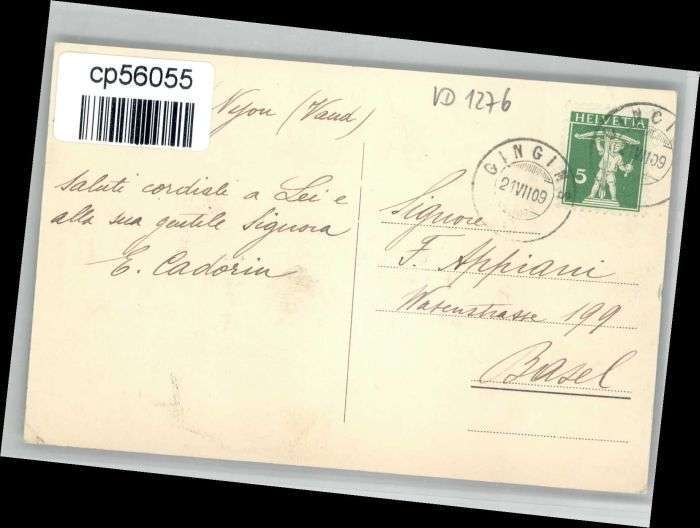 cp56055
VD 1276
Nyon (Vaud)
HELVETIA
5
GINGINS
21 VII 09
VII 09
Saluti cordiali a Lei e
alla sua gentile Signora
E. Cadorin
Signore
F. Appiani
Wasenstrasse 199
Basel